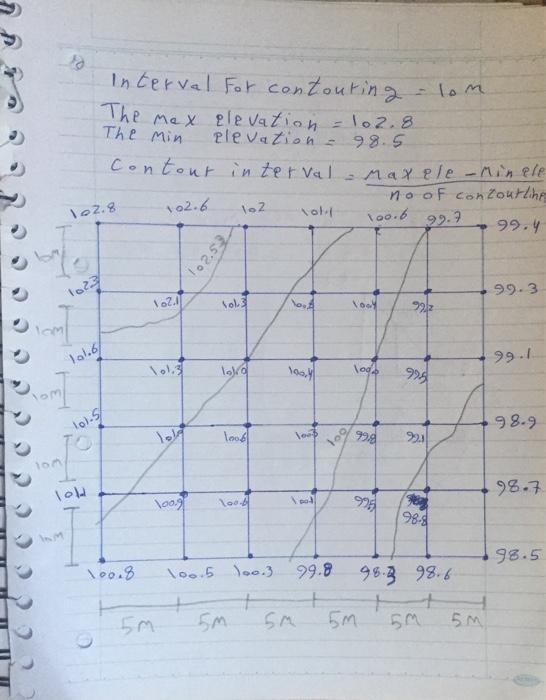 Interval For contouring = 10m
The max elevation = 102.8
The Min elevation = 98.5
Contour interval = Max ele - Min ele
no of contourline
102.8 102.6 102 101.1 100.6 99.7 99.4
10m 102.53
102.3 102.1 101.3 99.3
10m
101.6 101.3 101.0 100.4 99.1
10m
101.5 100.6 99.8 98.9
10m 100
100.9 98.7
98.8
10m
98.5
100.8 100.5 100.3 99.8 98.6
5m 5m 5m 5m 5m 5m